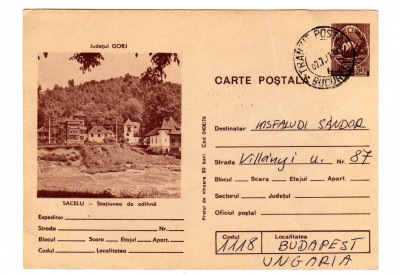 Judeţul GORJ
SACELU – Staţiunea de odihnă
Expeditor
Strada Nr.
Blocul Scara Etajul Apart.
Codul Localitatea
Preţul de vînzare 30 bani Cod 0408/76
TRANZIT POST
BUCUR
CARTE POŞTALĂ
Destinatar KISFALUDI SÁNDOR
Strada Villányi u. Nr. 87
Blocul Scara Etajul Apart.
Sectorul Judeţul
Oficiul poştal
Codul Localitatea
1118 BUDAPEST
UNGARIA